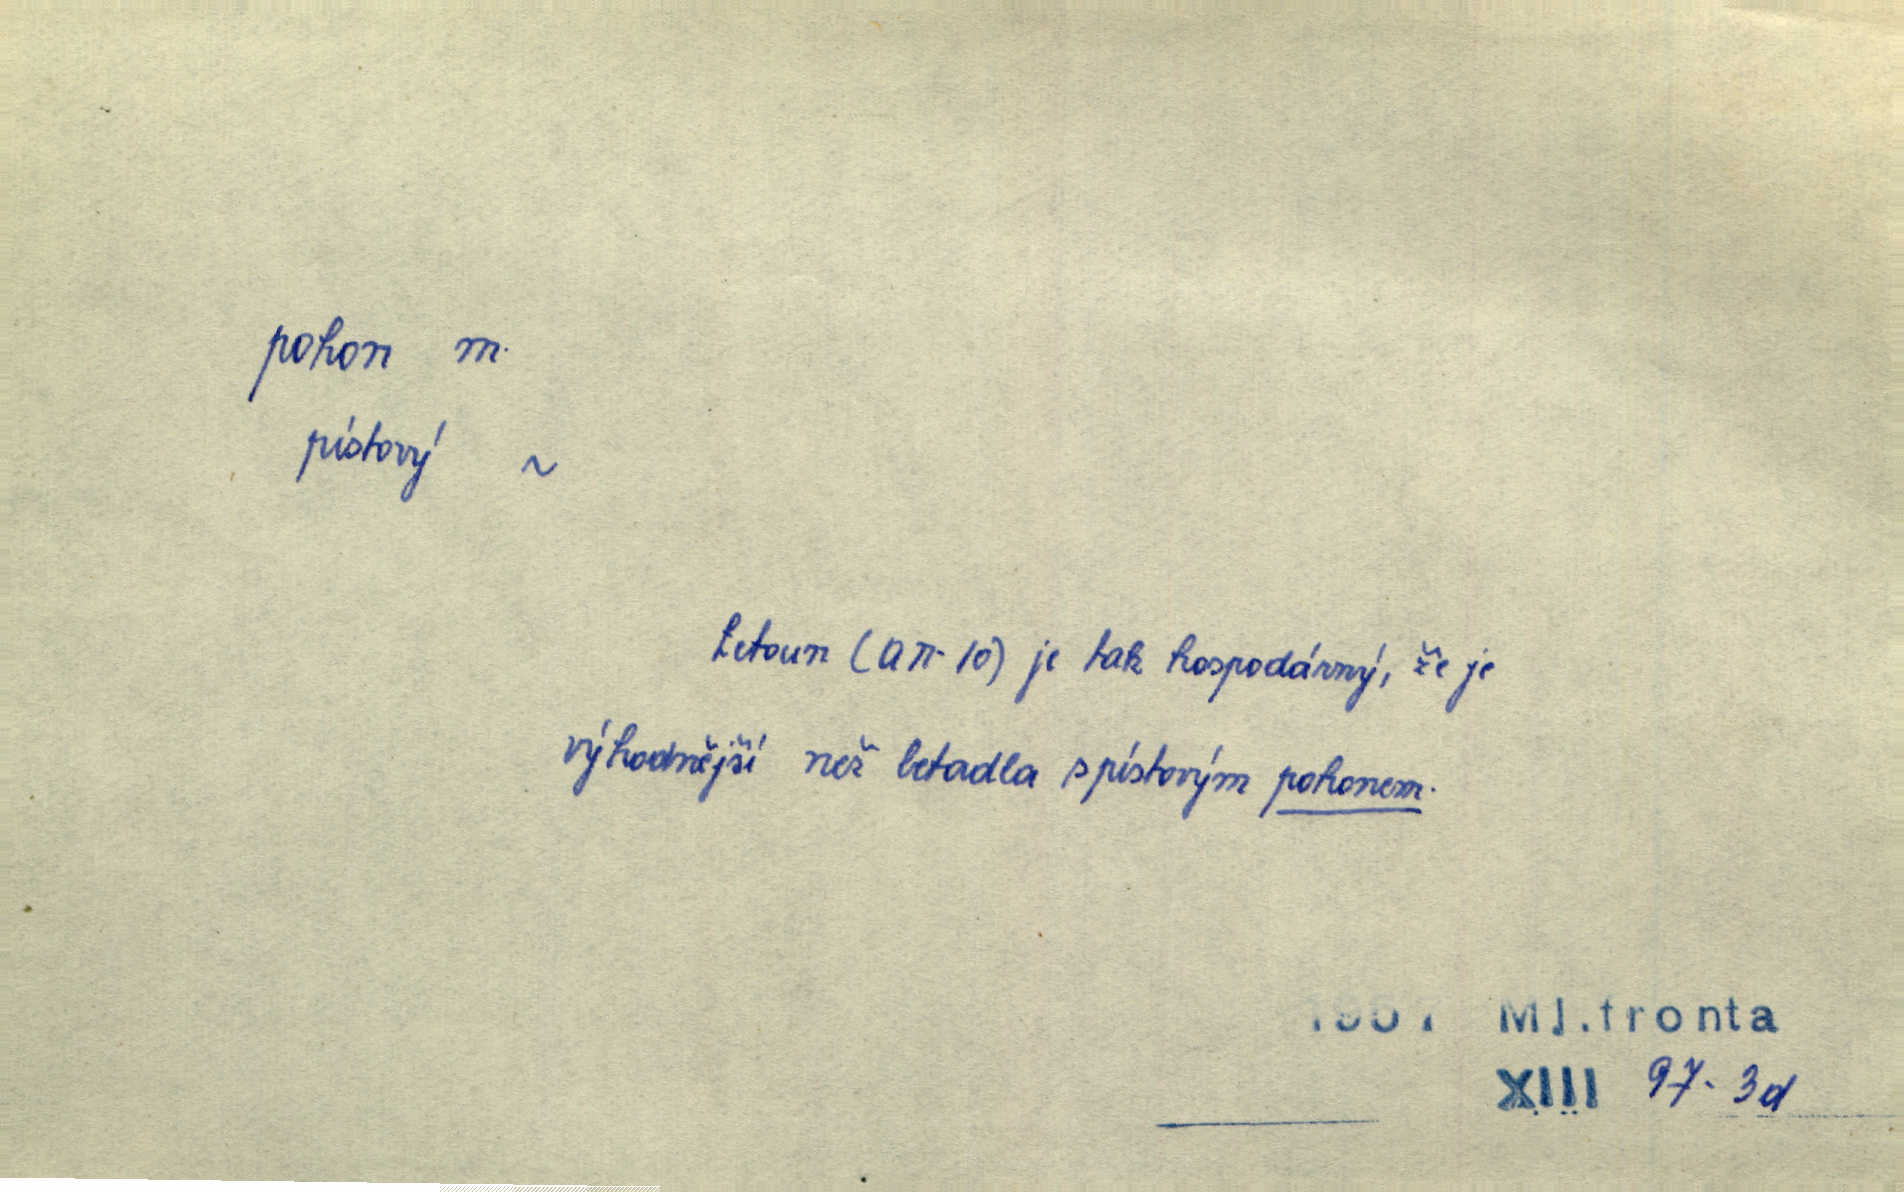 pohon m.
pístový ~
Letoun (an-10) je tak hospodárný, že je
výhodnější než letadla s pístovým pohonem.
1957 Ml.fronta
XIII 97-3d